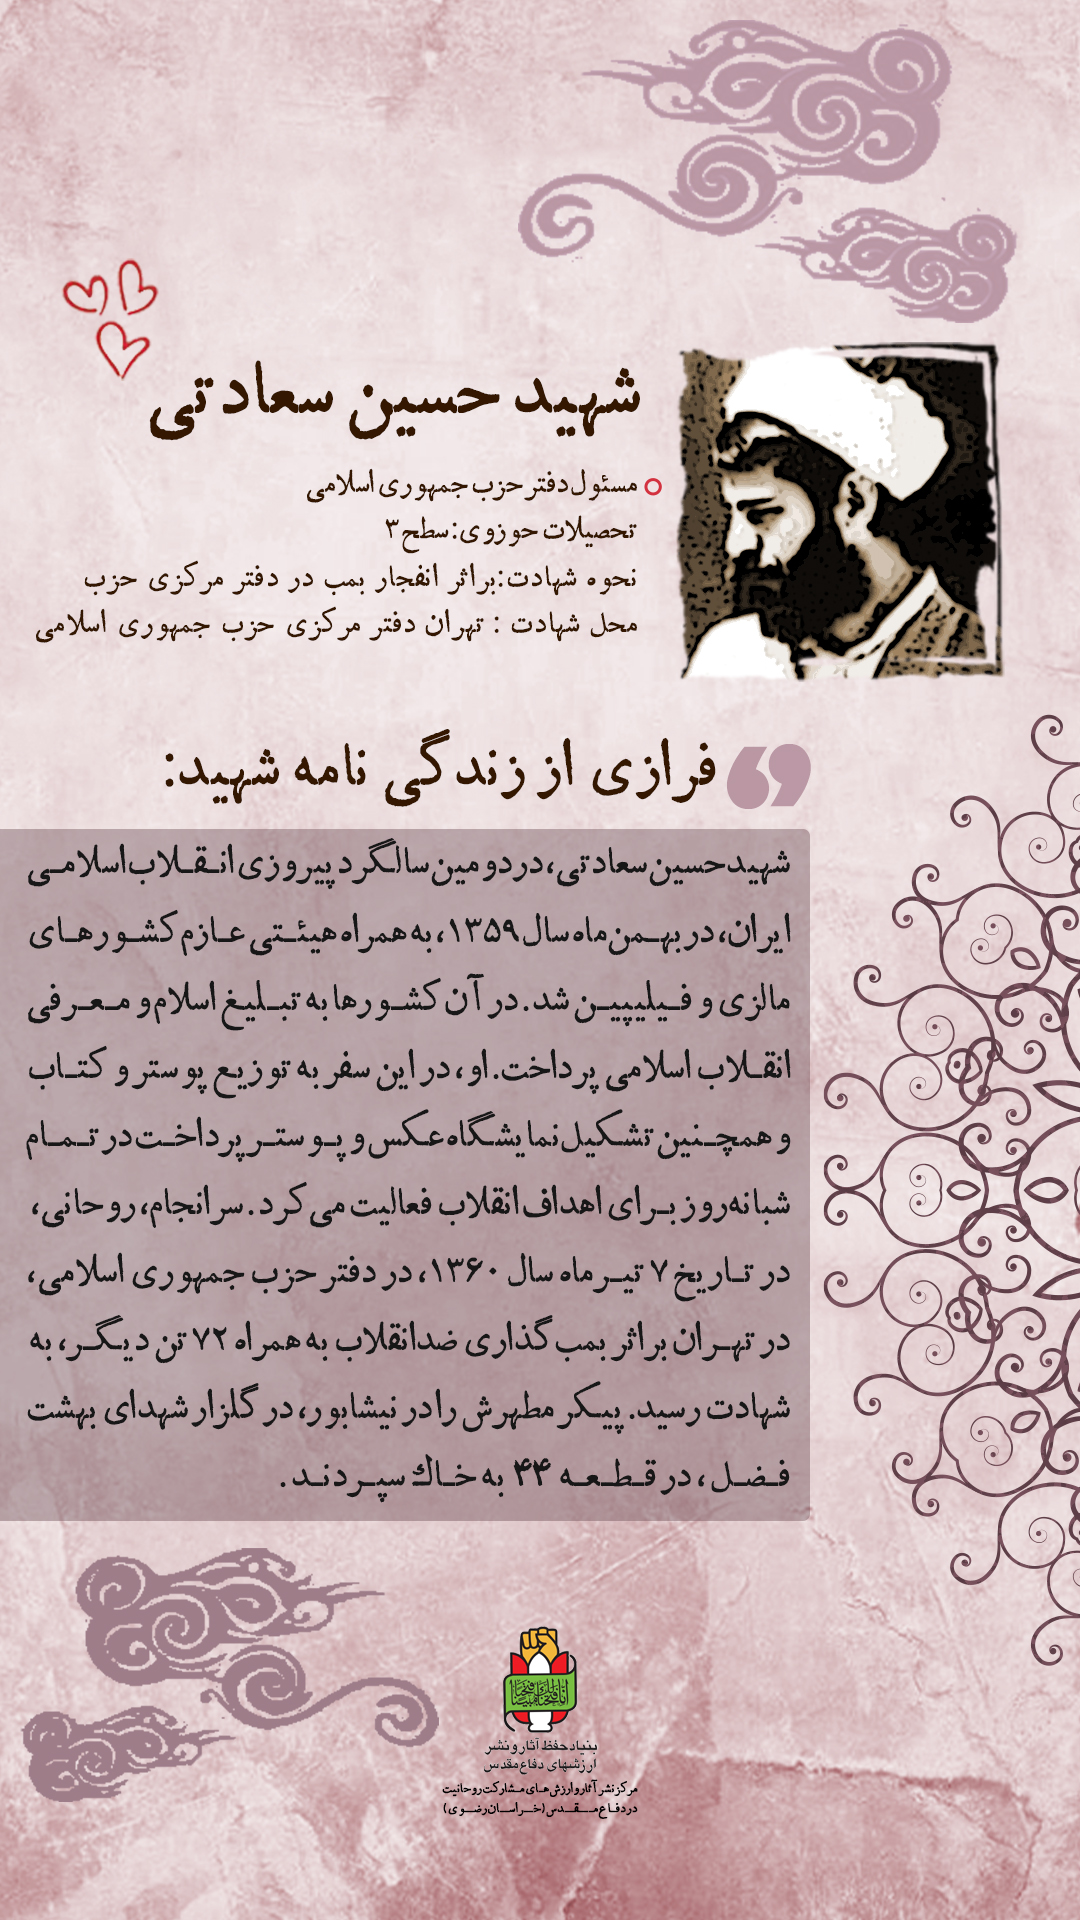 شهید حسین سعادتی
مسئول دفتر حزب جمهوری اسلامی
تحصیلات حوزوی: سطح ۳
نحوه شهادت: براثر انفجار بمب در دفتر مرکزی حزب
محل شهادت : تهران دفتر مرکزی حزب جمهوری اسلامی
فرازی از زندگی نامه شهید:
شهید حسین سعادتی، در دومین سالگرد پیروزی انقلاب اسلامی
ایران، در بهمن ماه سال ۱۳۵۹، به همراه هیئتی عازم کشورهای
مالزی و فیلیپین شد. در آن کشورها به تبلیغ اسلام و معرفی
انقلاب اسلامی پرداخت. او، در این سفر به توزیع پوستر و کتاب
و همچنین تشکیل نمایشگاه عکس و پوستر پرداخت در تمام
شبانه‌روز برای اهداف انقلاب فعالیت می‌کرد. سرانجام، روحانی،
در تاریخ ۷ تیرماه سال ۱۳۶۰، در دفتر حزب جمهوری اسلامی،
در تهران براثر بمب گذاری ضدانقلاب به همراه ۷۲ تن دیگر، به
شهادت رسید. پیکر مطهرش را در نیشابور، در گلزار شهدای بهشت
فضل، در قطعه ۴۴ به خاک سپردند.
انا فتحنا لک فتحا مبینا
بنیاد حفظ آثار و نشر
ارزشهای دفاع مقدس
مرکز نشر آثار و ارزش های مشارکت روحانیت
در دفاع مقدس (خراسان رضوی)